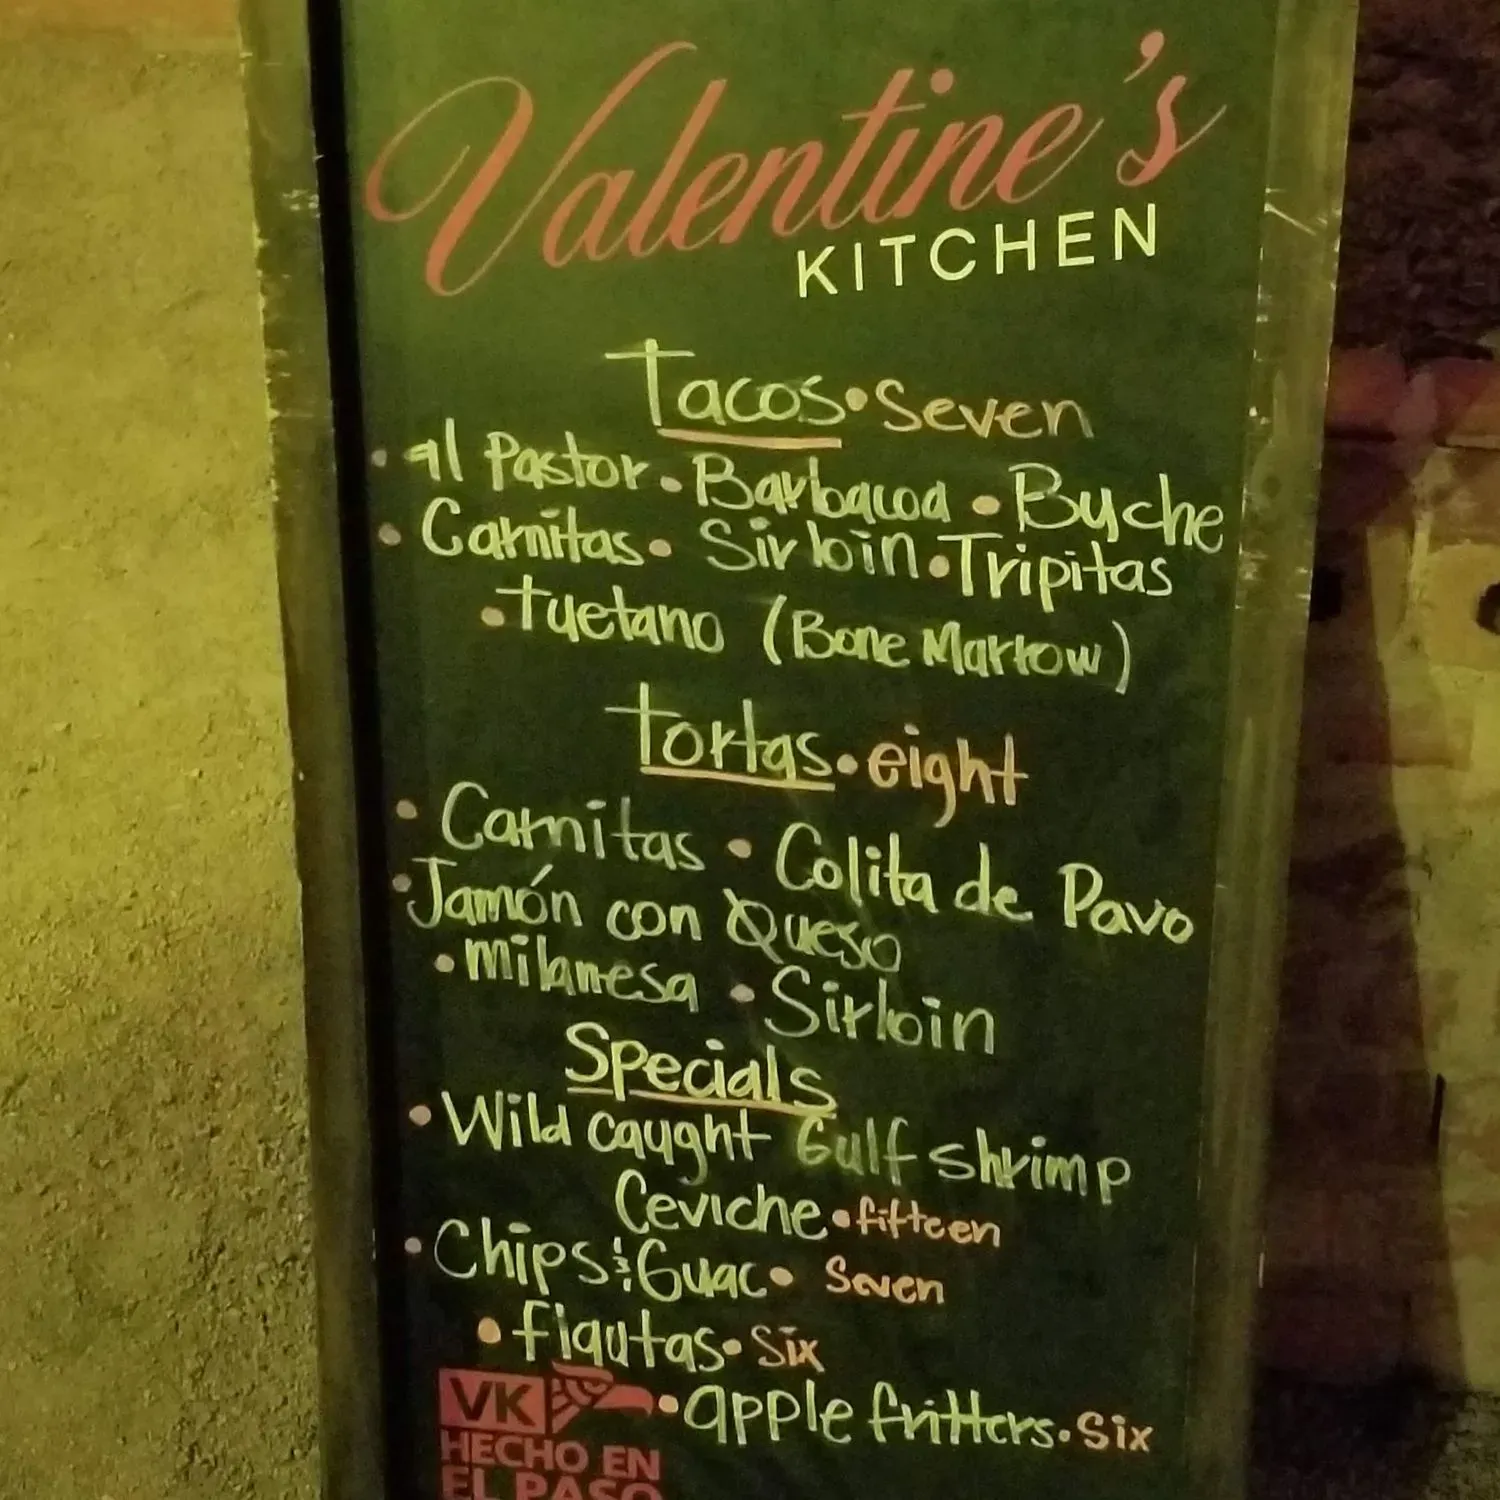 Valentine's
KITCHEN
Tacos • Seven
• al Pastor • Barbacoa • Buche
• Carnitas • Sirloin • Tripitas
• Tuetano (Bone Marrow)
Tortas • eight
• Carnitas • Colita de Pavo
• Jamón con Queso
• milanesa • Sirloin
Specials
• Wild caught Gulf shrimp
Ceviche • fifteen
• Chips & Guac • Seven
• flautas • Six
• apple fritters • Six
VK
HECHO EN
EL PASO